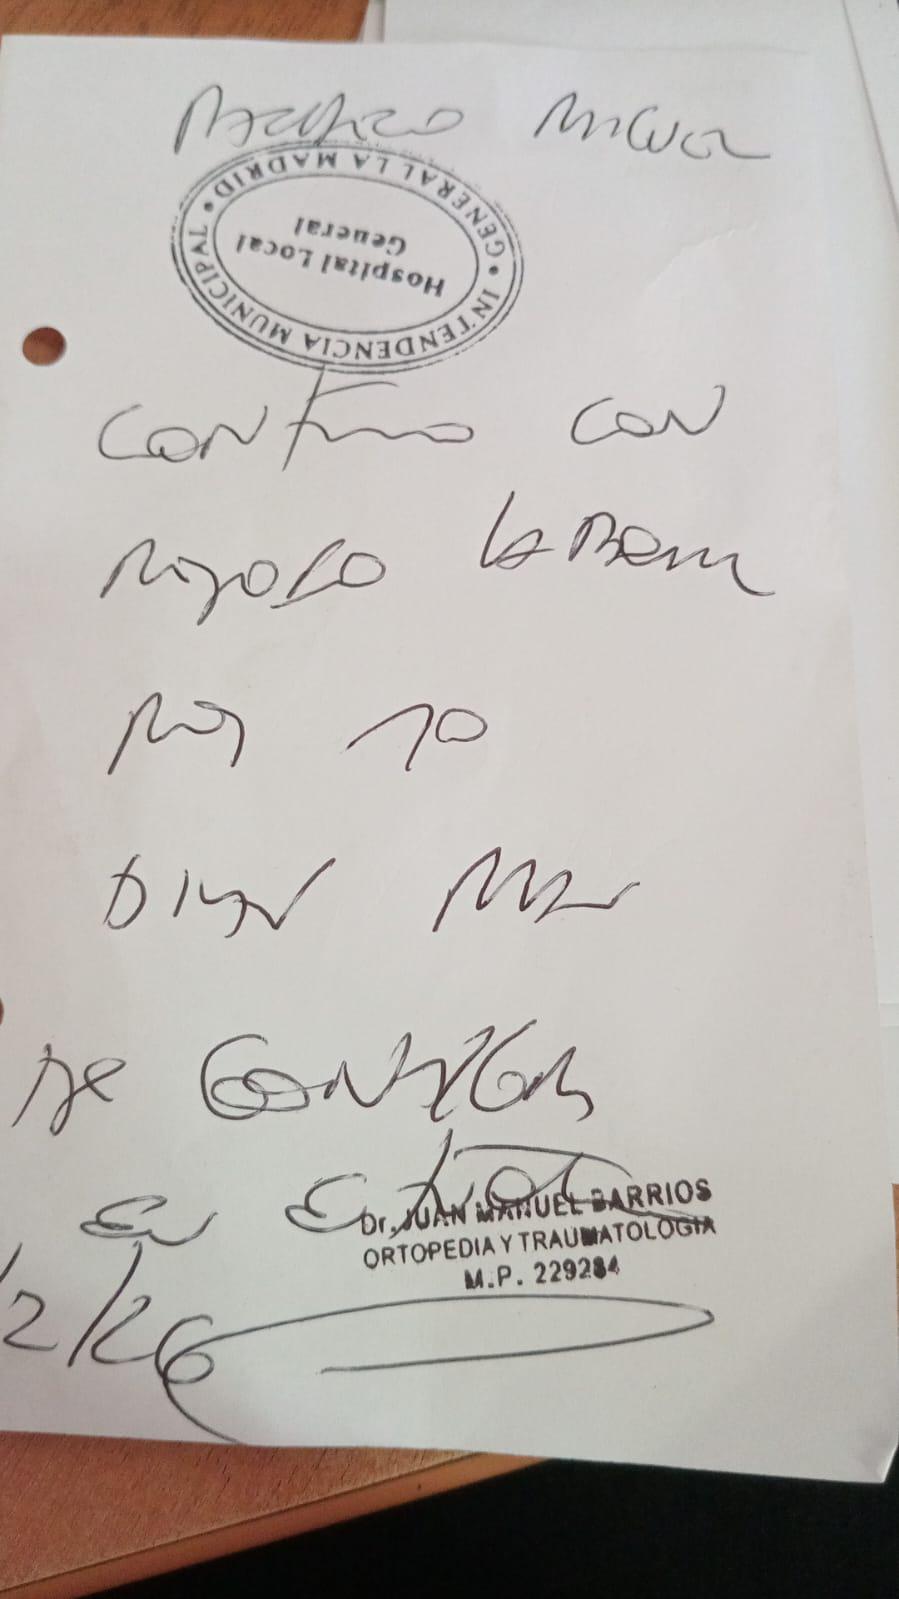 Miguel
INTENDENCIA MUNICIPAL • GENERAL LA MADRID •
Hospital Local
General
Continuo con
Reposo Laboral
Por 10
Dias Mas
De
En
Dr. JUAN MANUEL BARRIOS
ORTOPEDIA Y TRAUMATOLOGIA
M.P. 229284
/2/26